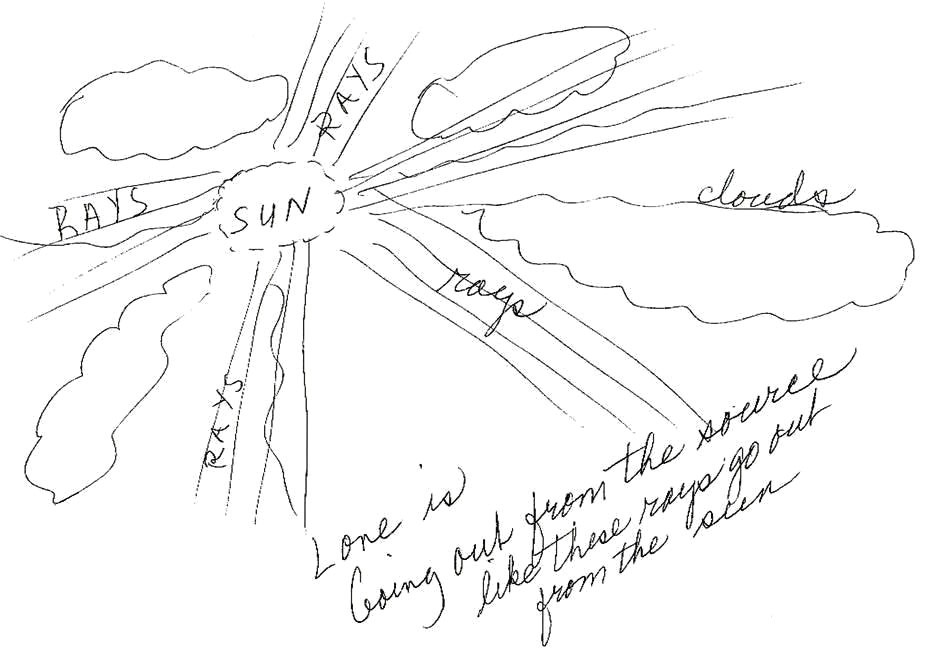 RAYS
clouds
RAYS
SUN
rays
RAYS
Love is
Going out from the source
like these rays go out
from the sun